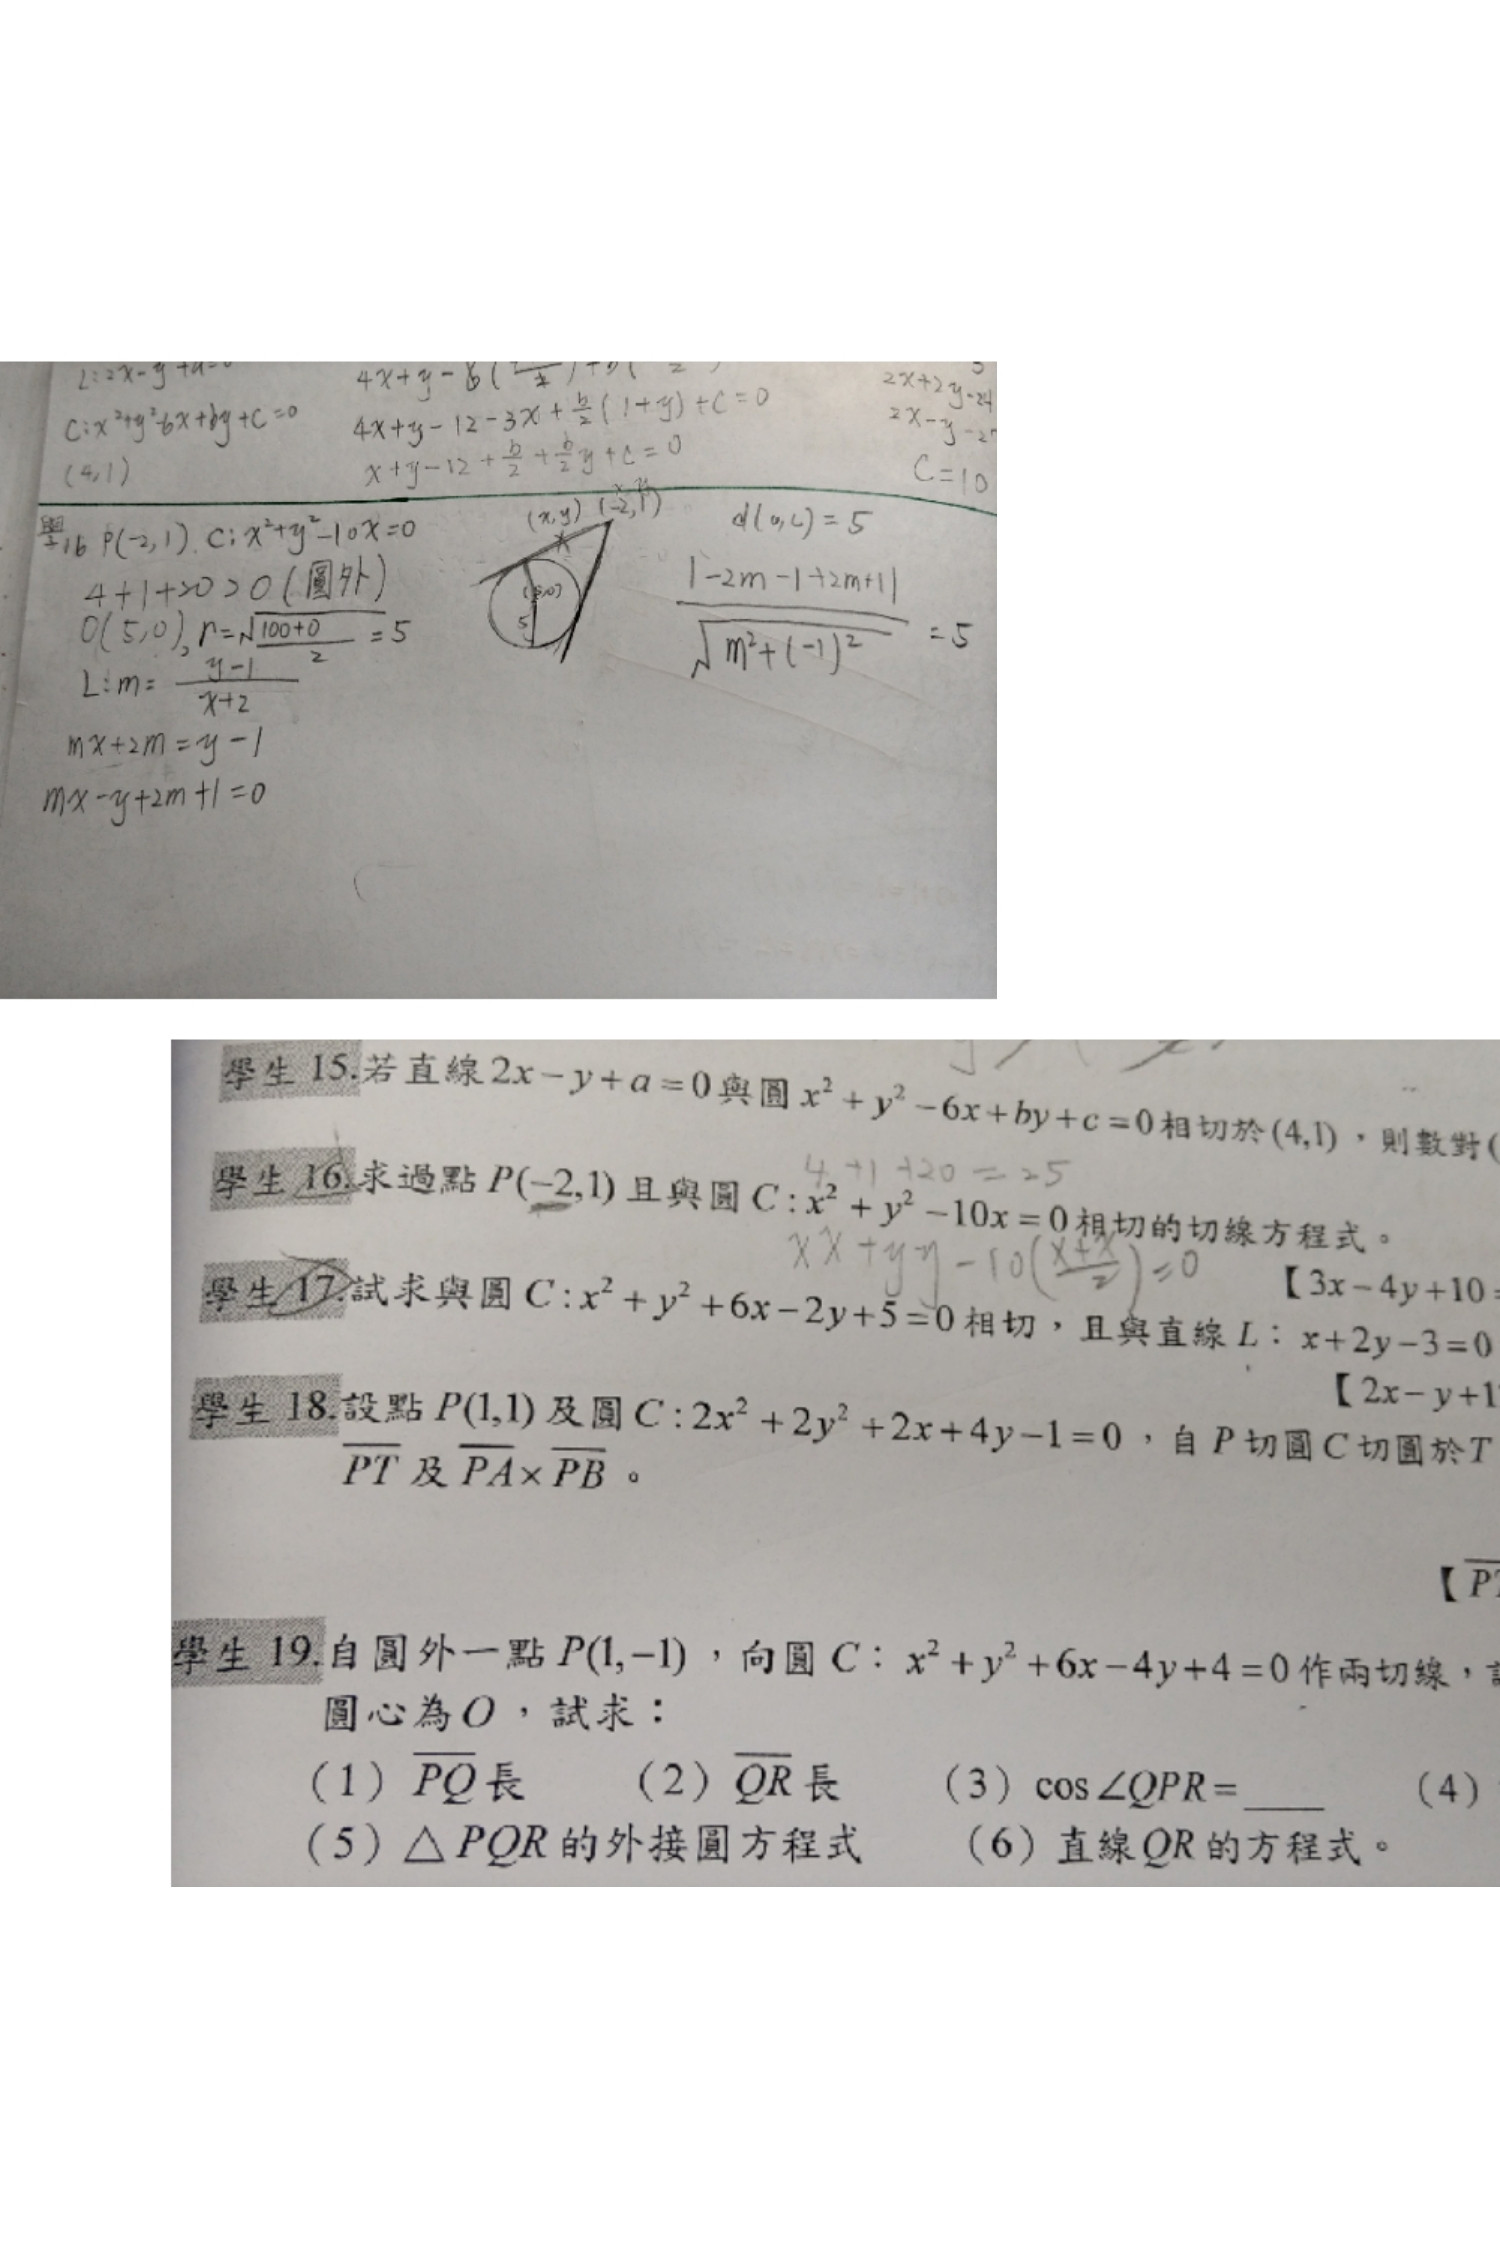 C:x²+y²-6x+by+c=0
(4,1)
4x+y-12-3x+b/2(1+y)+c=0
x+y-12+b/2+b/2y+c=0
2x+2y-24
2x-y-2
C=10
學16 P(-2,1). C:x²+y²-10x=0
4+1+20>0(圓外)
O(5,0), r=√100+0/2=5
L:m=y-1/x+2
mx+2m=y-1
mx-y+2m+1=0
(x,y) (-2,1)
5
d(o,L)=5
|-2m-1+2m+1|/√m²+(-1)²=5
學生 15.若直線2x-y+a=0與圓x²+y²-6x+by+c=0相切於(4,1),則數對(
4+1+20=25
學生 16.求過點P(-2,1)且與圓C:x²+y²-10x=0相切的切線方程式。
xx+yy-10(x+x/2)=0
【3x-4y+10=
學生 17.試求與圓C:x²+y²+6x-2y+5=0相切,且與直線L:x+2y-3=0
【2x-y+1
學生 18.設點P(1,1)及圓C:2x²+2y²+2x+4y-1=0,自P切圓C切圓於T
PT及PA×PB。
【P
學生 19.自圓外一點P(1,-1),向圓C:x²+y²+6x-4y+4=0作兩切線,
圓心為O,試求:
(1) PQ長 (2) QR長 (3) cos∠QPR=____ (4)
(5)△PQR的外接圓方程式 (6)直線QR的方程式。